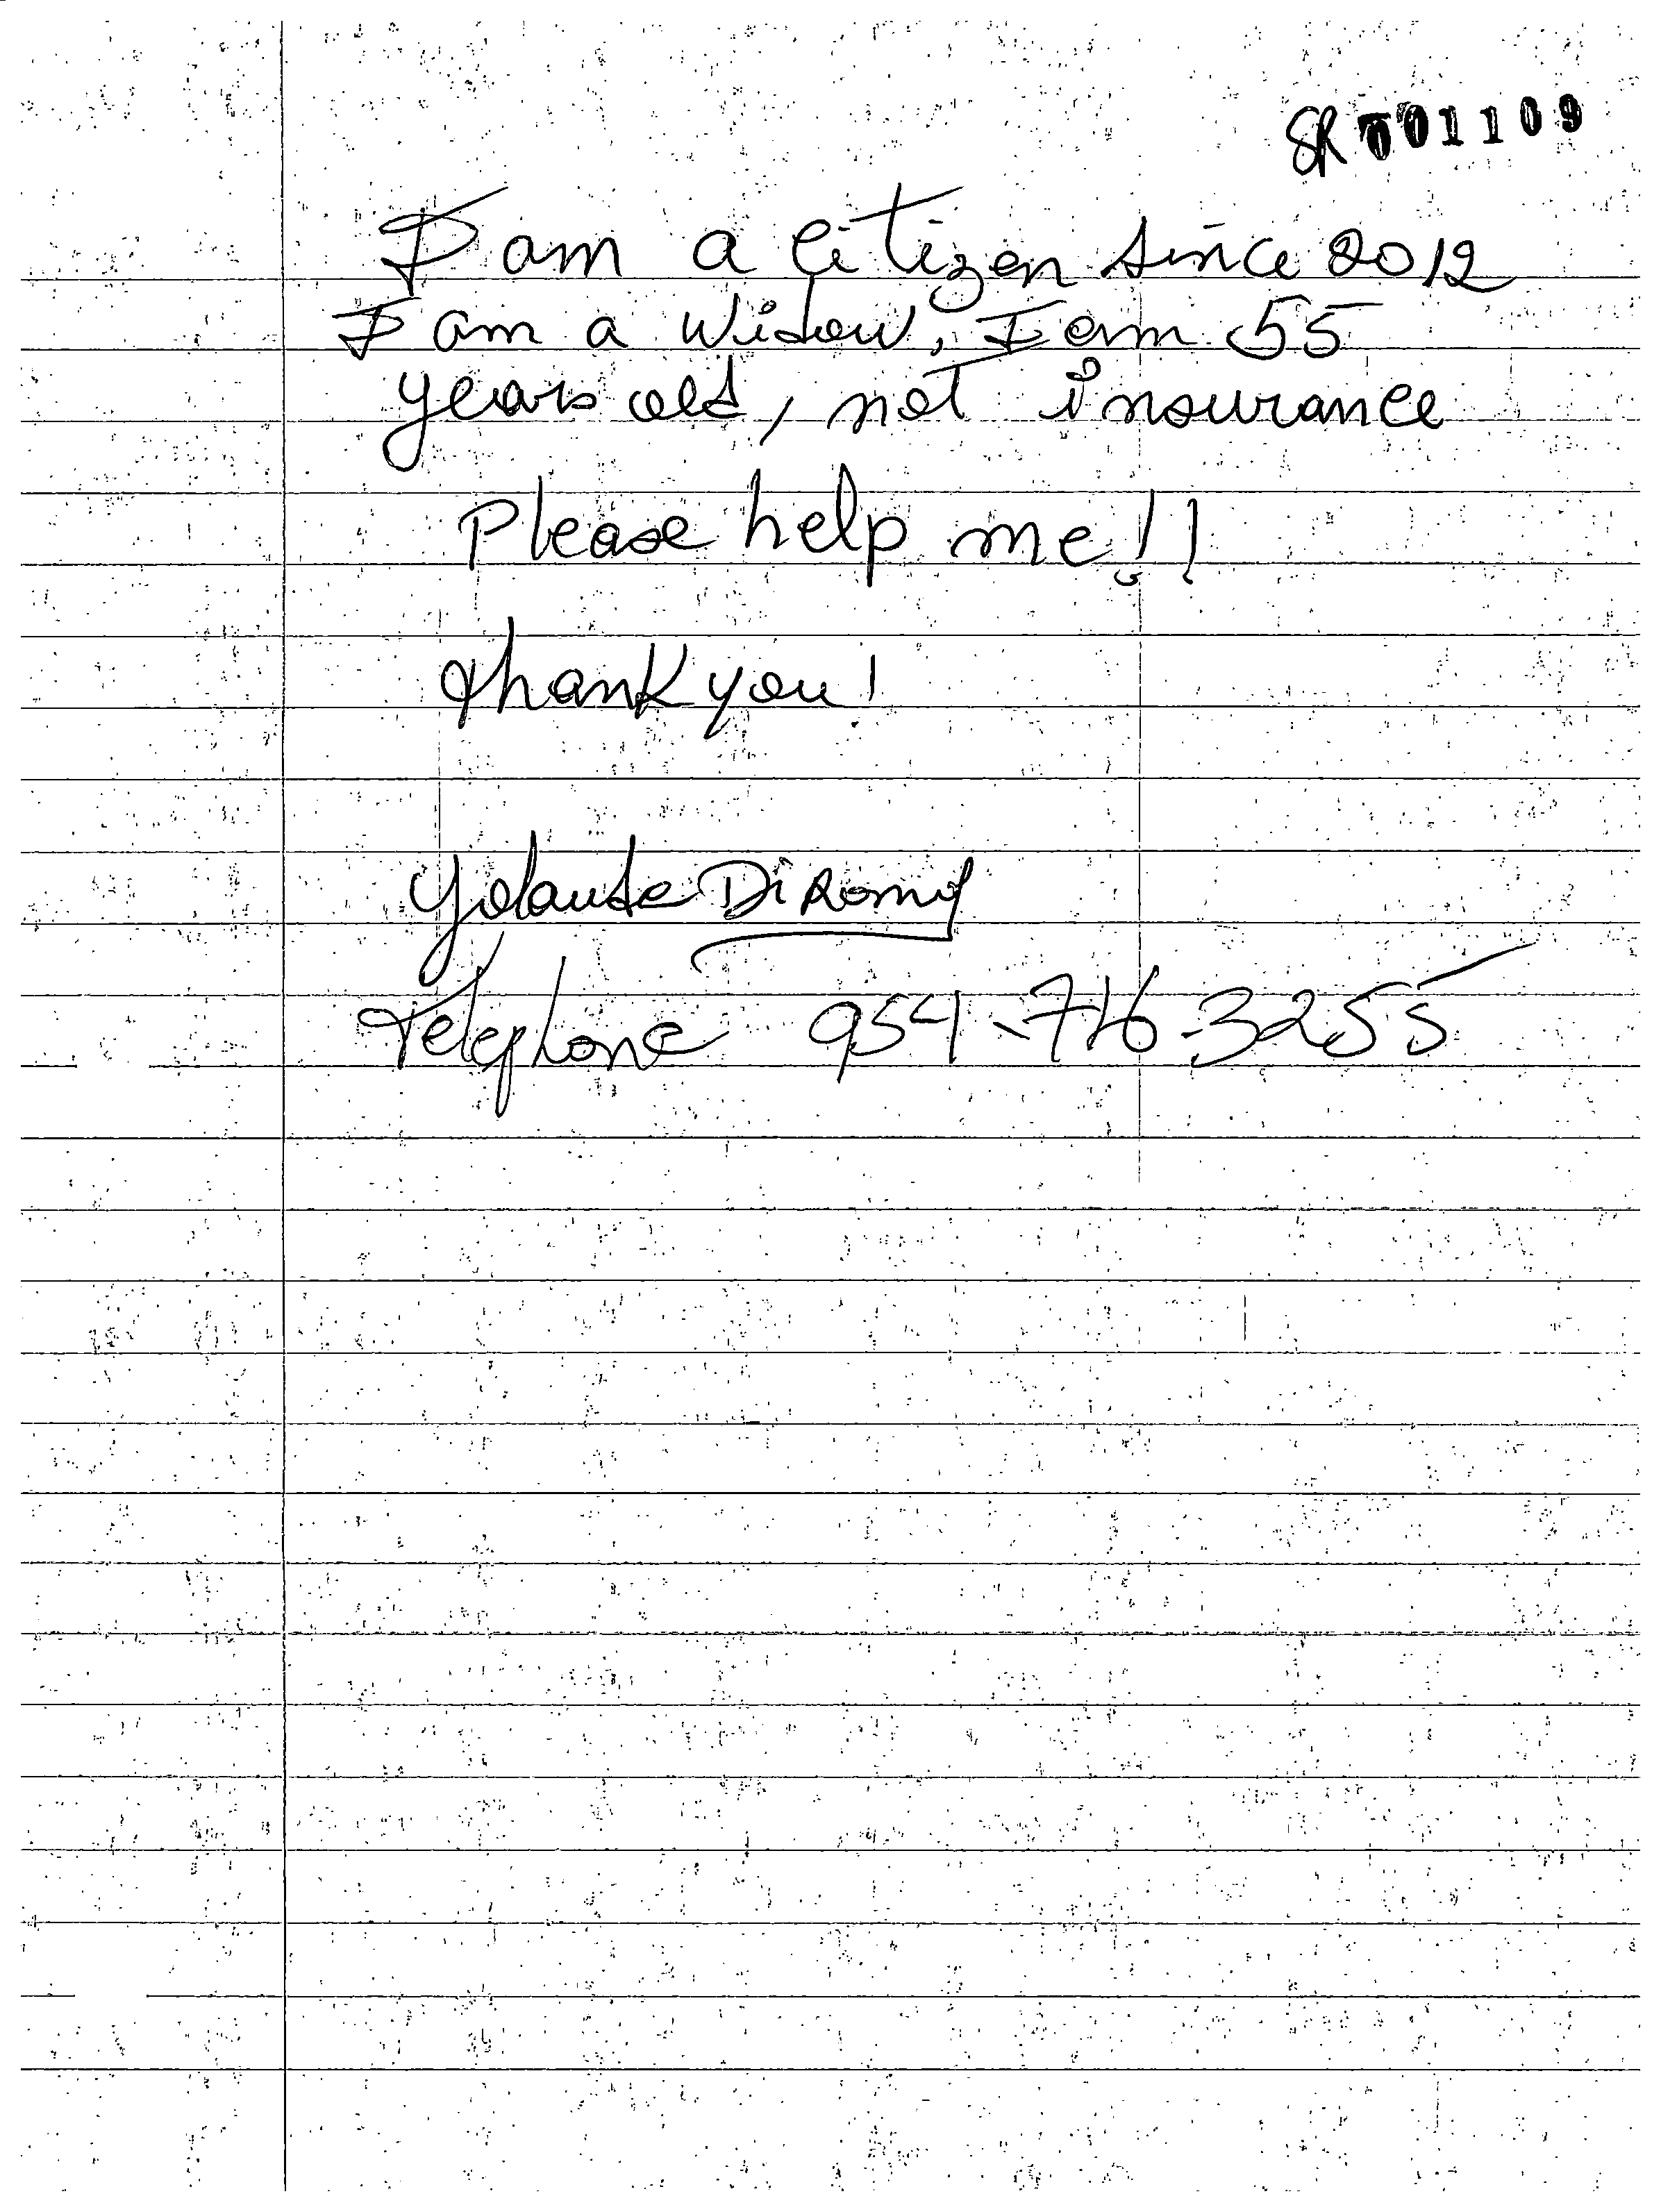 SR 001109
I am a Citizen since 2012
I am a widow, I am 55
years old, not insurance
Please help me!!
thank you!
Yolande DiRomy
Telephone 954-716-3255